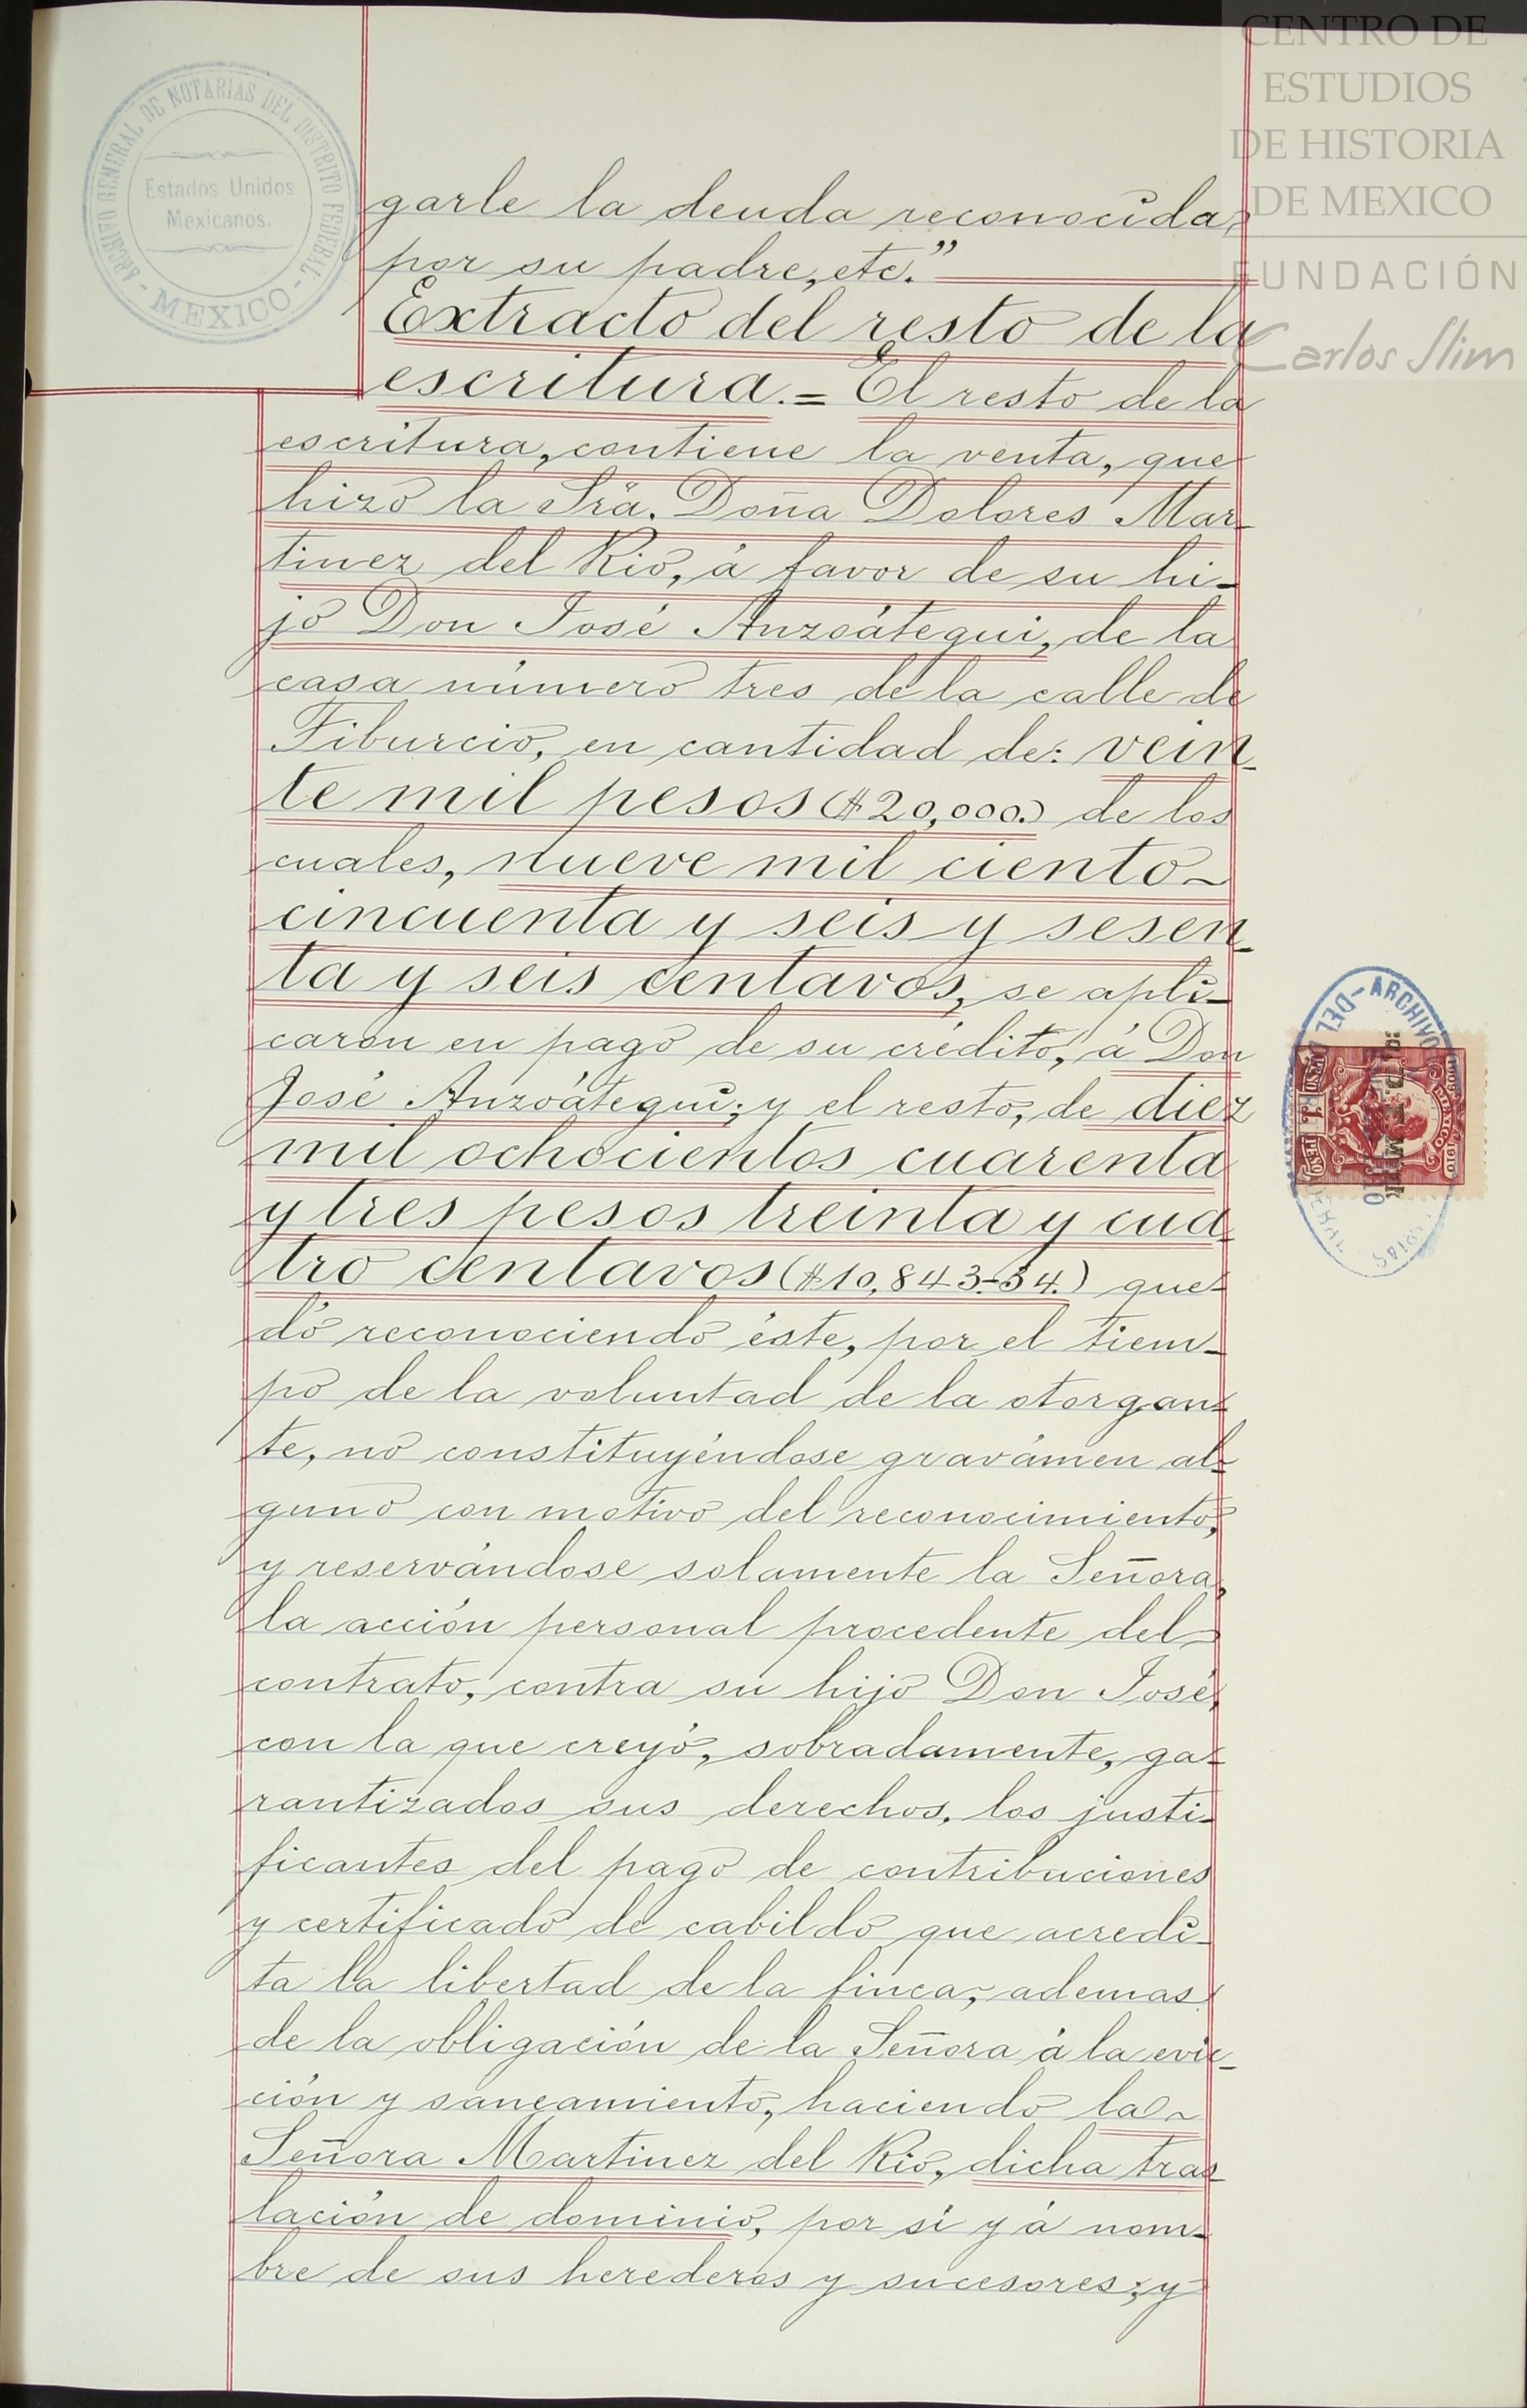 CENTRO DE
ESTUDIOS
DE HISTORIA
DE MEXICO
FUNDACIÓN
Carlos Slim
ARCHIVO GENERAL DE NOTARIAS DEL DISTRITO FEDERAL
- MEXICO -
Estados Unidos
Mexicanos.
garle la deuda reconocida,
por su padre, etc."
Extracto del resto de la
escritura.= El resto de la
escritura, contiene la venta, que
hizo la Sra. Doña Dolores Mar-
tinez del Rio, á favor de su hi-
jo Don José Anzoátegui, de la
casa número tres de la calle de
Tiburcio, en cantidad de: vein-
te mil pesos ($20,000.) de los
cuales, nueve mil ciento
cincuenta y seis y sesen-
ta y seis centavos, se apli-
caron en pago de su crédito, á Don
José Anzoátegui; y el resto, de diez
mil ochocientos cuarenta
y tres pesos treinta y cua-
tro centavos ($10,843-34.) que-
dó reconociendo éste, por el tiem-
po de la voluntad de la otorgan-
te, no constituyéndose gravámen al-
guno con motivo del reconocimiento,
y reservándose solamente la Señora,
la acción personal procedente del
contrato, contra su hijo Don José,
con la que creyó, sobradamente, ga-
rantizados sus derechos, los justi-
ficantes del pago de contribuciones
y certificado de cabildo que acredi-
ta la libertad de la finca, ademas
de la obligación de la Señora á la evic-
ción y saneamiento, haciendo la
Señora Martinez del Rio, dicha tras-
lación de dominio, por si y á nom-
bre de sus herederos y sucesores; y
ARCHIVO
MEXICO
1909 1910
UN PESO 1